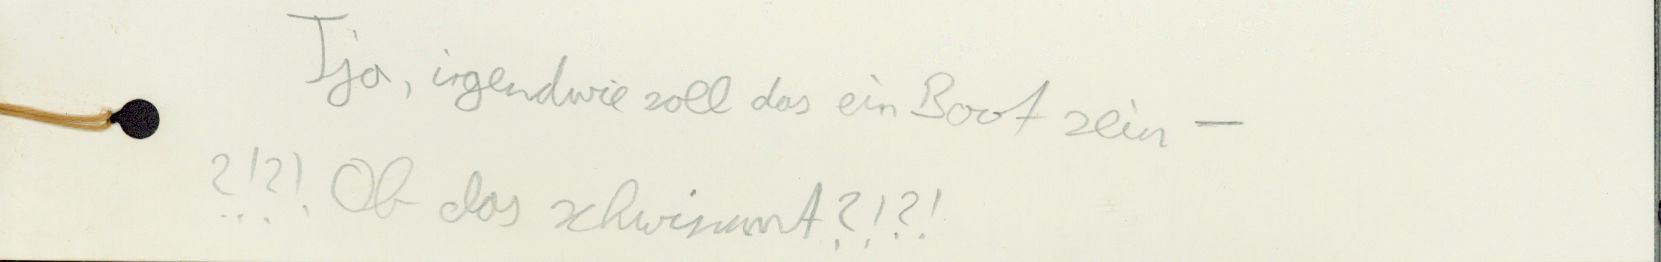 Tja, irgendwie soll das ein Boot sein —
?!?! Ob das schwimmt?!?!